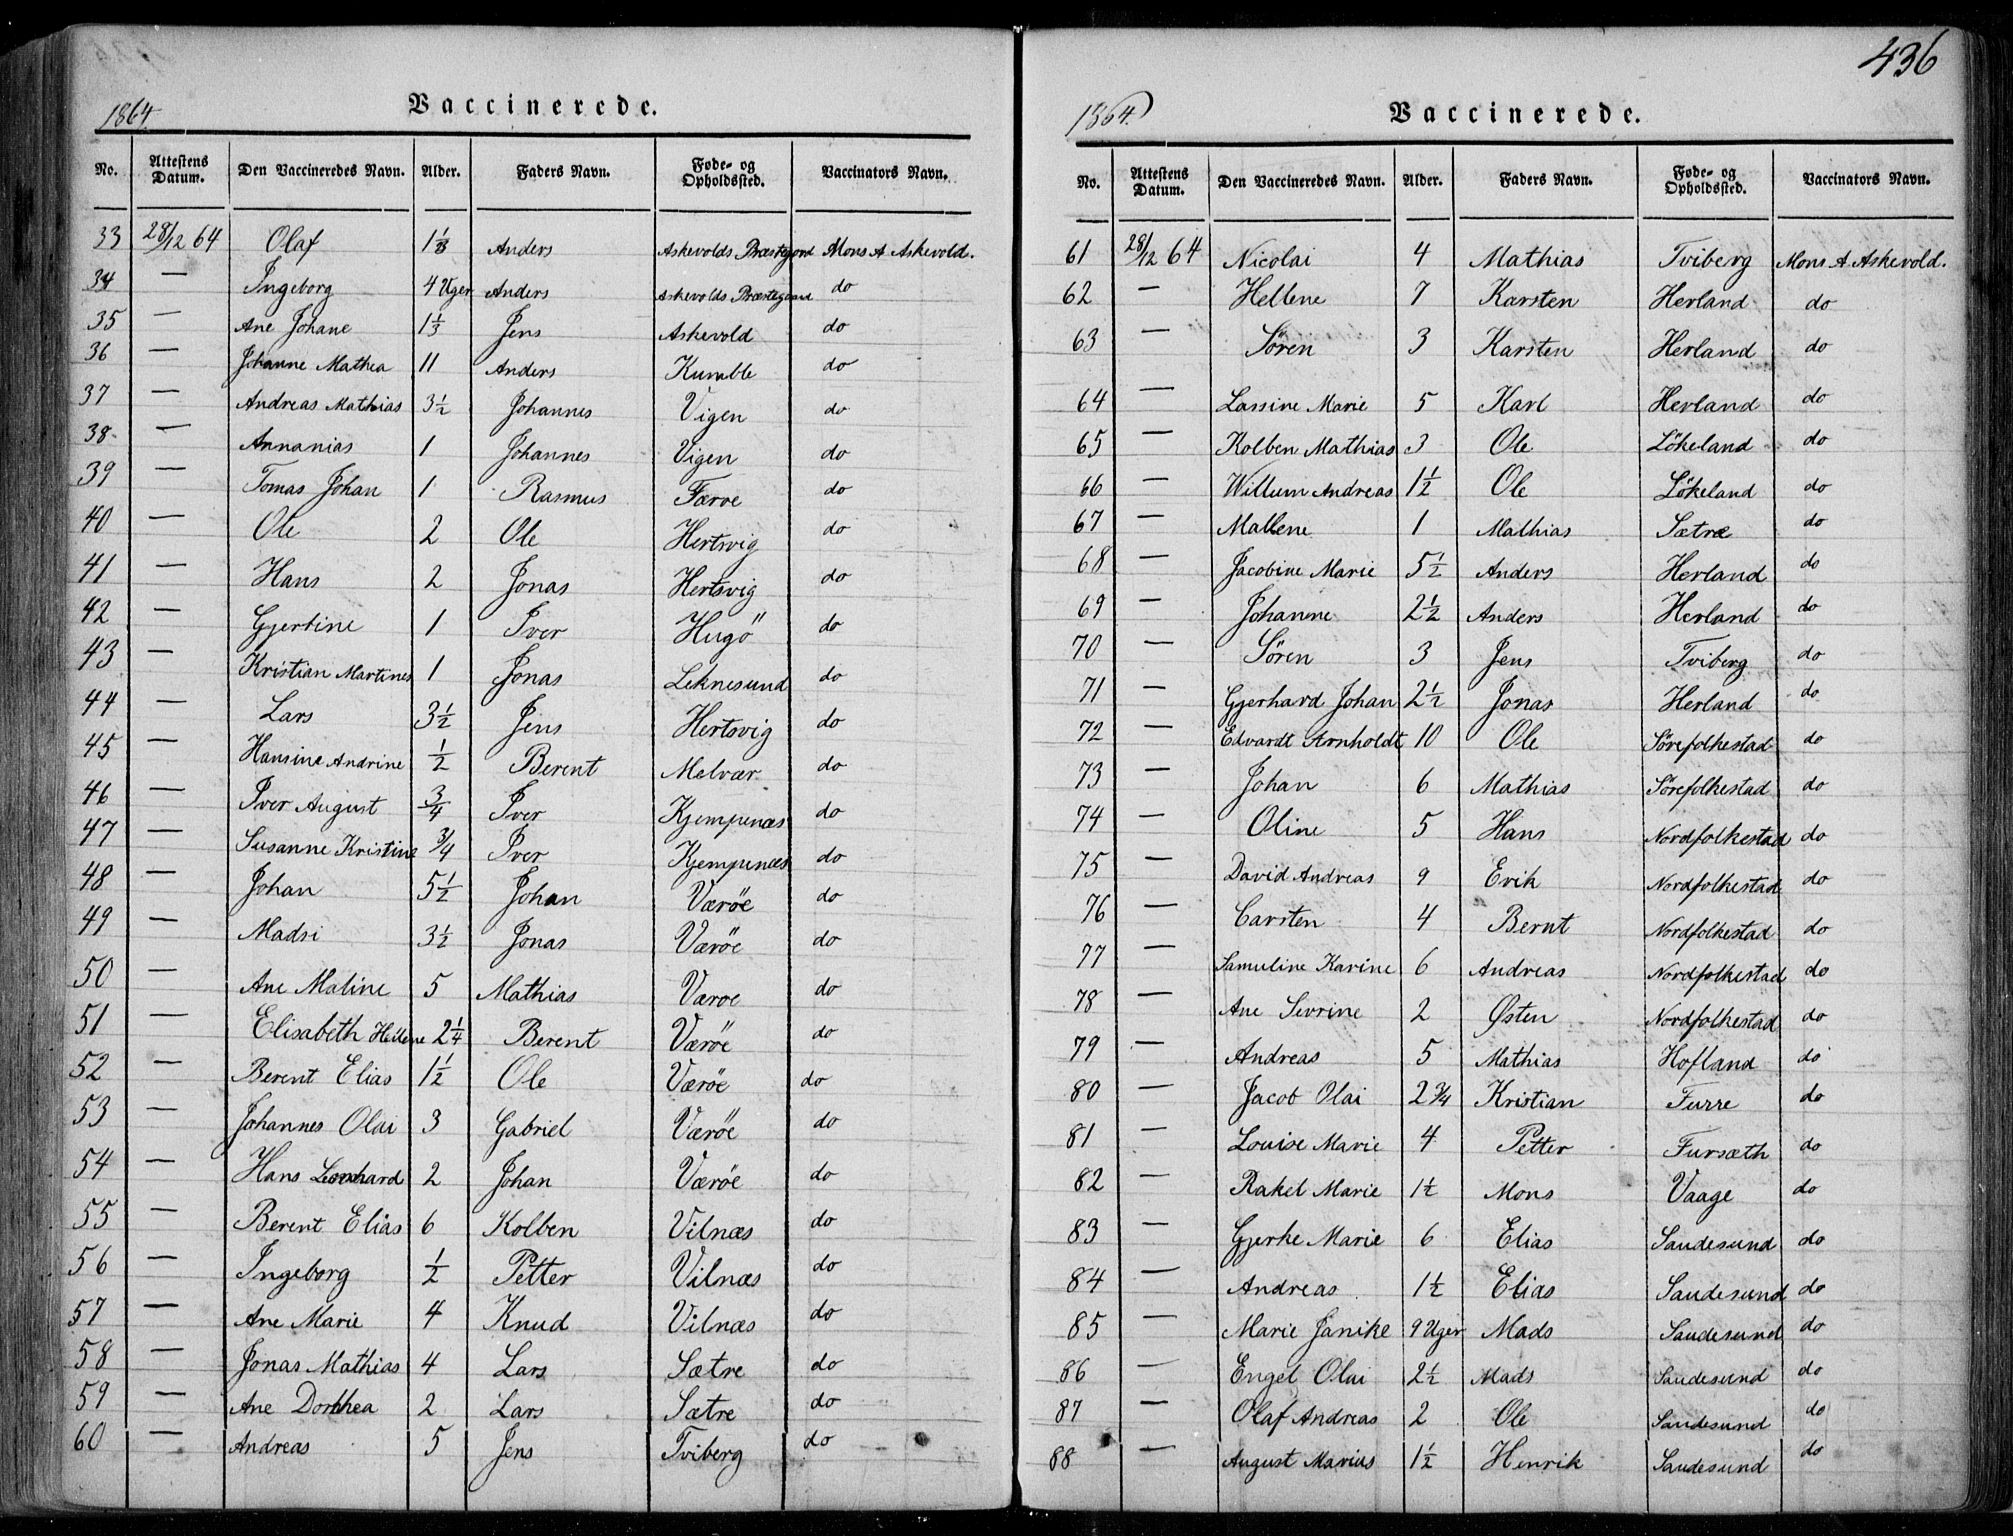 436
1864. Vaccinerede.
No. Attestens Datum. Den Vaccineredes Navn. Alder. Faders Navn. Føde- og Opholdssted. Vaccinators Navn.
33 28/12 64 Olaf 1 1/3 Anders Askevolds Præstegaard Mons A Askevold.
34 — Ingeborg 4 Uger Anders Askevolds Præstegaard do
35 — Ane Johane 1 1/3 Jens Askevold do
36 — Johanne Mathea 11 Anders Kumble do
37 — Andreas Mathias 3 1/2 Johannes Vigen do
38 — Annanias 1 Johannes Vigen do
39 — Tomas Johan 1 Rasmus Færøe do
40 — Ole 2 Ole Hertsvig do
41 — Hans 2 Jonas Hertsvig do
42 — Gjertine 1 Iver Hugö do
43 — Kristian Martines 1 Jonas Leknesund do
44 — Lars 3 1/2 Jens Hertsvig do
45 — Hansine Andrine 1/2 Berent Melvær do
46 — Iver August 3/4 Iver Kjempenæs do
47 — Susanne Kristine 3/4 Iver Kjempenæs do
48 — Johan 5 1/2 Johan Væröe do
49 — Madsi 3 1/2 Jonas Væröe do
50 — Ane Maline 5 Mathias Væroe do
51 — Elisabeth Hellene 2 1/4 Berent Væröe do
52 — Berent Elias 1 1/2 Ole Væröe do
53 — Johannes Olai 3 Gabriel Væröe do
54 — Hans Leonhard 2 Johan Væröe do
55 — Berent Elias 6 Kolben Vilnæs do
56 — Ingeborg 1/2 Petter Vilnæs do
57 — Ane Marie 4 Knud Vilnæs do
58 — Jonas Mathias 4 Lars Sætre do
59 — Ane Dorthea 2 Lars Sætre do
60 — Andreas 5 Jens Tviberg do
1864. Vaccinerede.
No. Attestens Datum. Den Vaccineredes Navn. Alder. Faders Navn. Føde- og Opholdssted. Vaccinators Navn.
61 28/12 64 Nicolai 4 Mathias Tviberg Mons A Askevold.
62 — Hellene 7 Karsten Herland do
63 — Sören 3 Karsten Herland do
64 — Lassine Marie 5 Karl Herland do
65 — Kolben Mathias 3 Ole Lökeland do
66 — Willum Andreas 1 1/2 Ole Lökeland do
67 — Mallene 1 Mathias Sætræ do
68 — Jacobine Marie 5 1/2 Anders Herland do
69 — Johanne 2 1/2 Anders Herland do
70 — Sören 3 Jens Tviberg do
71 — Gjerhard Johan 2 1/2 Jonas Herland do
72 — Edvardt Arnholdt 10 Ole Sörefolkestad do
73 — Johan 6 Mathias Sörefolkestad do
74 — Oline 5 Hans Nordfolkestad do
75 — David Andreas 9 Erik Nordfolkestad do
76 — Carsten 4 Bernt Nordfolkestad do
77 — Samuline Karine 6 Andreas Nordfolkestad do
78 — Ane Sevrine 2 Østen Nordfolkestad do
79 — Andreas 5 Mathias Hofland do
80 — Jacob Olai 2 3/4 Kristian Furre do
81 — Louise Marie 4 Petter Fursæth do
82 — Rakel Marie 1 1/2 Mons Vaage do
83 — Gjerke Marie 6 Elias Sandesund do
84 — Andreas 1 1/2 Elias Sandesund do
85 — Marie Janike 9 Uger Mads Sandesund do
86 — Engel Olai 2 1/2 Mads Sandesund do
87 — Olaf Andreas 2 Ole Sandesund do
88 — August Marius 1 1/2 Henrik Sandesund do